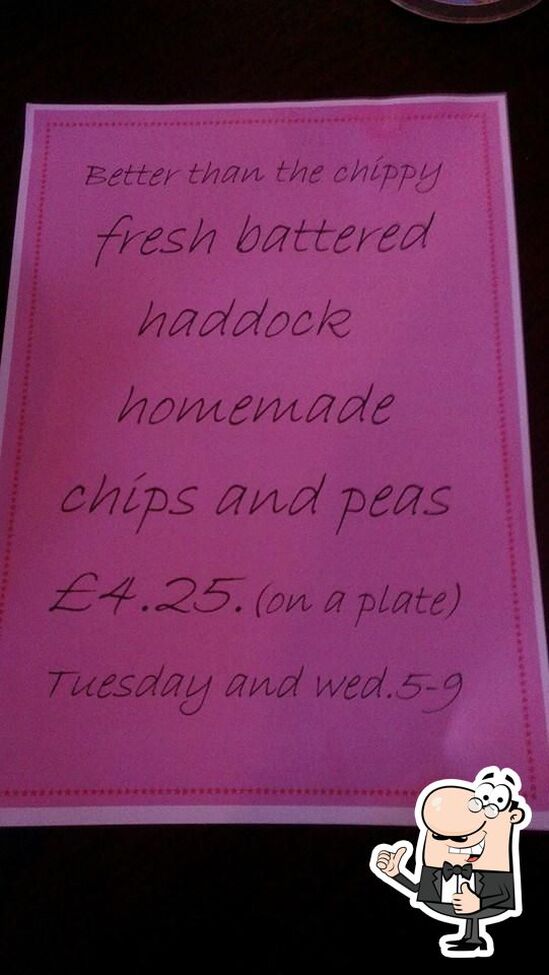 Better than the chippy
fresh battered
haddock
homemade
chips and peas
£4.25.(on a plate)
Tuesday and wed.5-9